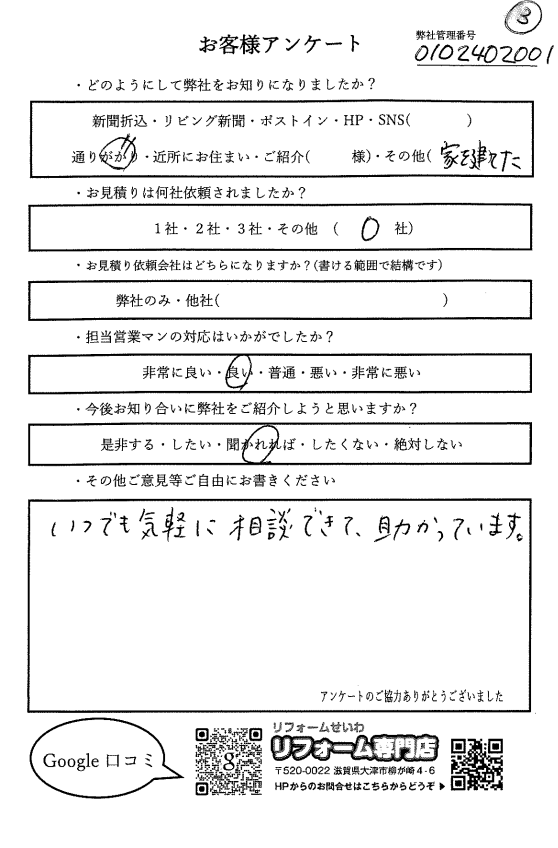 3
お客様アンケート
弊社管理番号
0102402001
・どのようにして弊社をお知りになりましたか？
新聞折込・リビング新聞・ポストイン・HP・SNS(　　　　)
通りがかり・近所にお住まい・ご紹介(　　　様)・その他( 家を建てた
・お見積りは何社依頼されましたか？
1社・2社・3社・その他　(　0　社)
・お見積り依頼会社はどちらになりますか？(書ける範囲で結構です)
弊社のみ・他社(　　　　　　　　　　　　　　　　)
・担当営業マンの対応はいかがでしたか？
非常に良い・良い・普通・悪い・非常に悪い
・今後お知り合いに弊社をご紹介しようと思いますか？
是非する・したい・聞かれれば・したくない・絶対しない
・その他ご意見等ご自由にお書きください
いつでも気軽に相談できて、助かっています。
アンケートのご協力ありがとうございました
Google 口コミ
g
リフォームせいわ
リフォーム専門店
〒520-0022 滋賀県大津市柳が崎4-6
HPからのお問合せはこちらからどうぞ▶